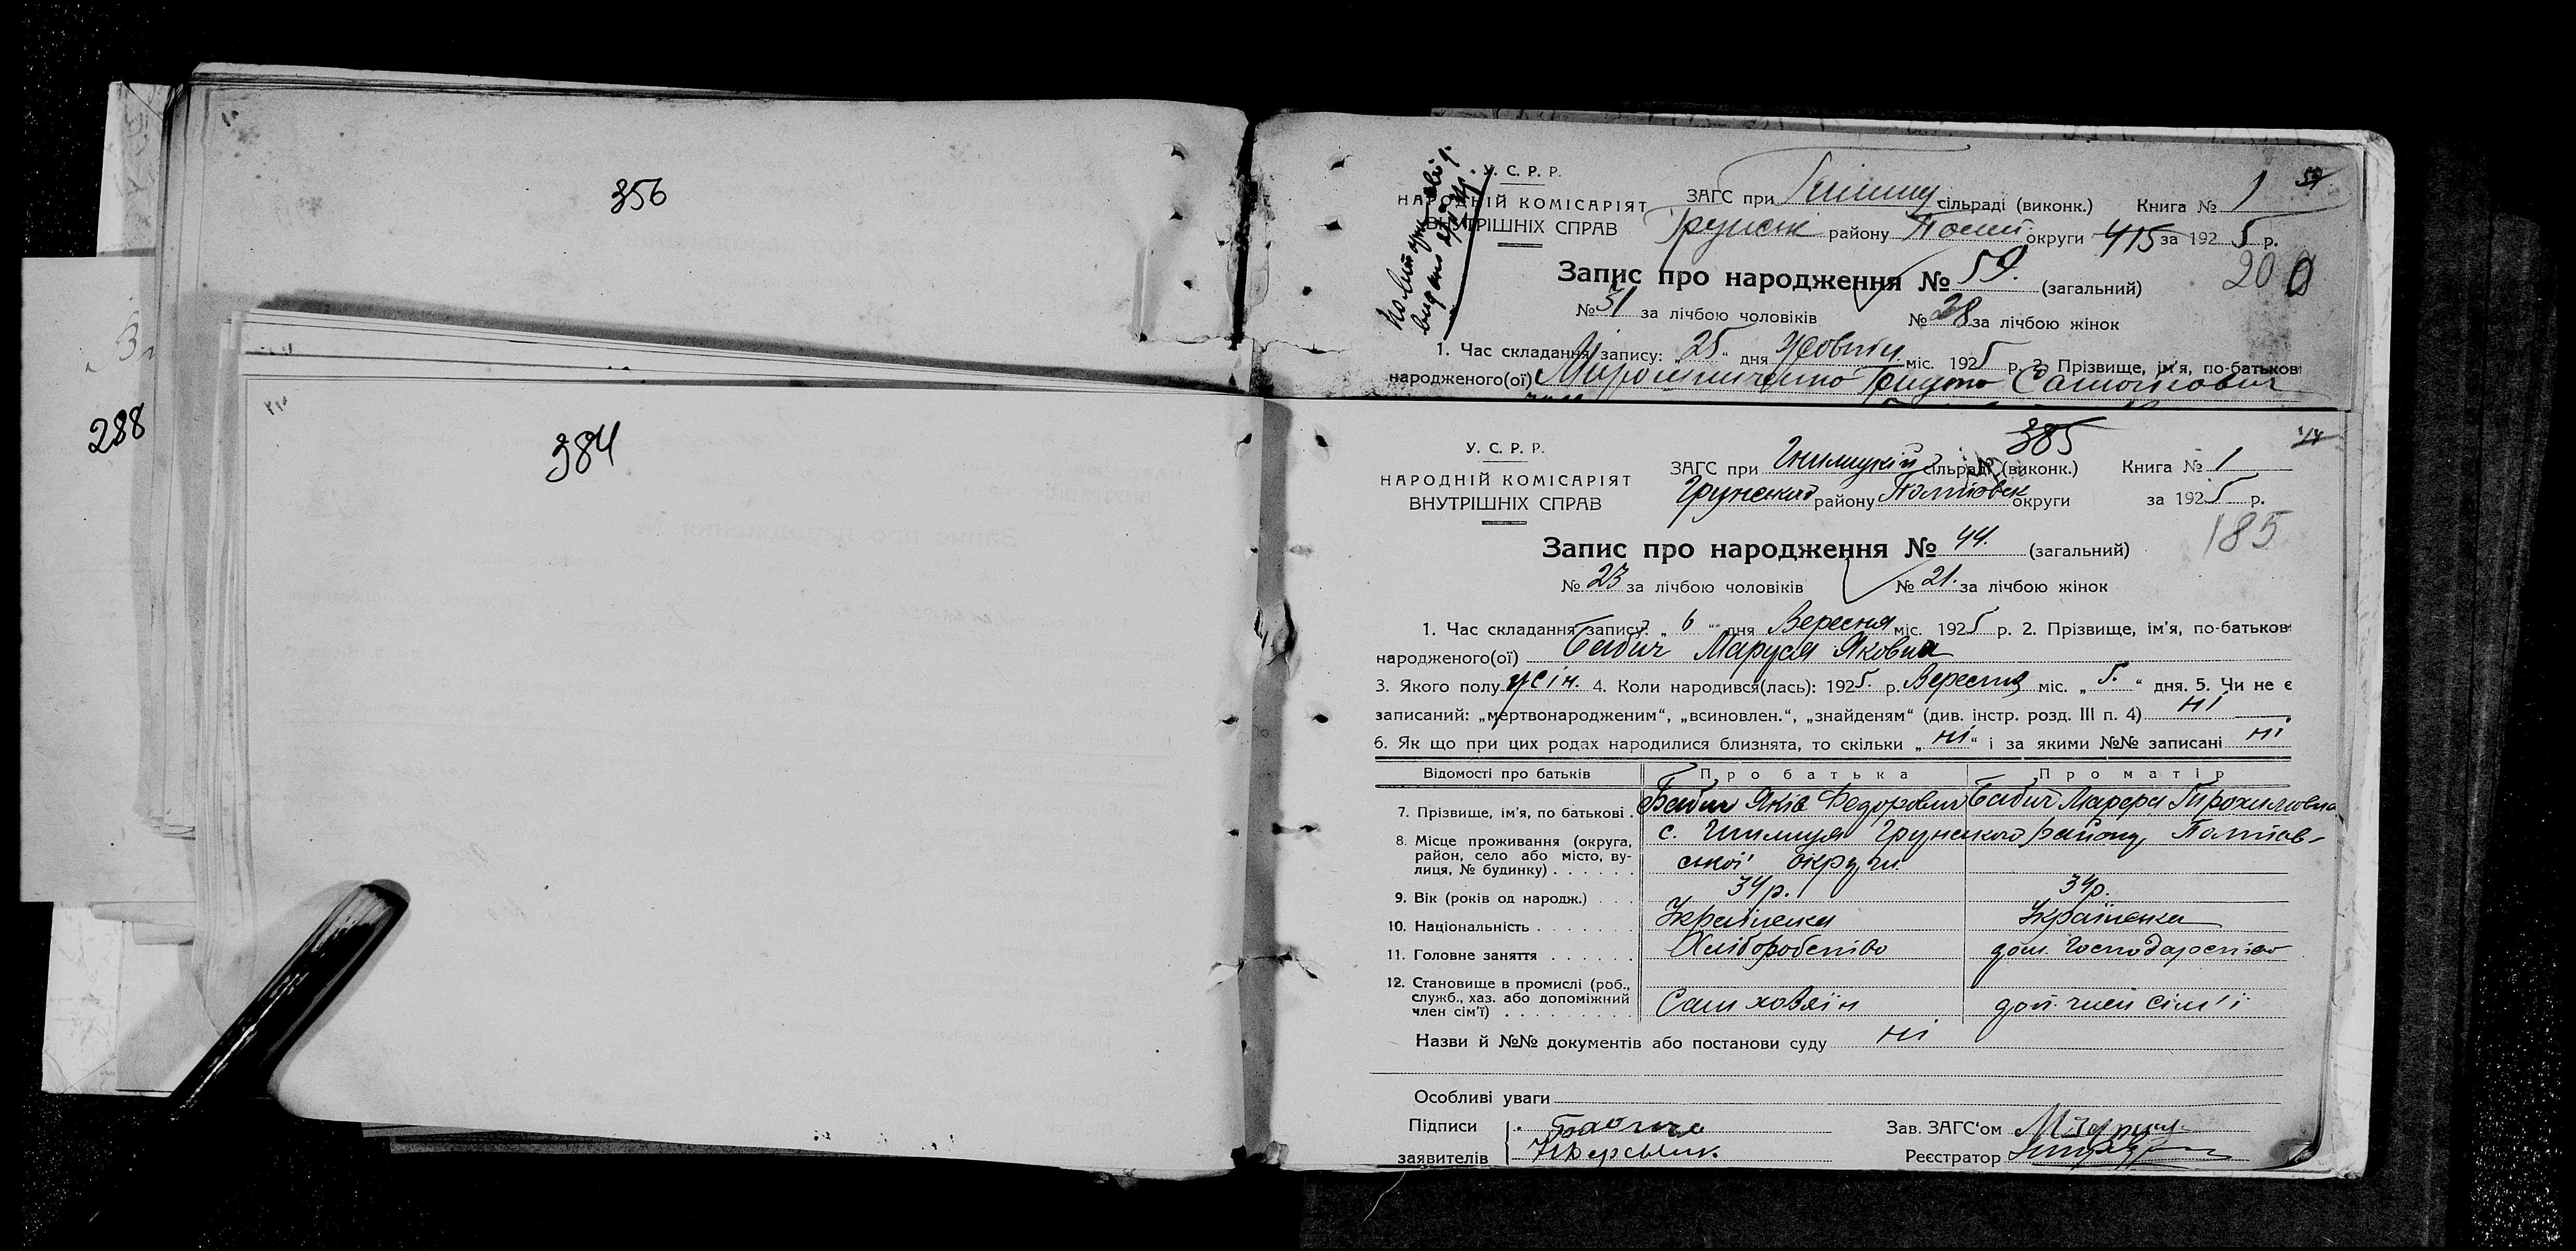 356
288
384
У. С. Р. Р.
НАРОДНІЙ КОМІСАРІЯТ
ВНУТРІШНІХ СПРАВ
ЗАГС при сільраді (виконк.) Книга № 1
Грунськ району Полт округи 415 за 1925 р.
200
Запис про народження № 59. (загальний)
№ 31 за лічбою чоловіків № 28 за лічбою жінок
1. Час складання запису: „ 25 “ дня Жовтн міс. 1925 р. 2. Прізвище, ім'я, по-батькові
народженого(ої) Мірошниченко
385
У. С. Р. Р.
НАРОДНІЙ КОМІСАРІЯТ
ВНУТРІШНІХ СПРАВ
ЗАГС при Гнилицкій сільраді (виконк.) Книга № 1
Грунського району Полтовськ округи за 1925 р.
185
Запис про народження № 44. (загальний)
№ 23 за лічбою чоловіків № 21. за лічбою жінок
1. Час складання запису: „ 6 “ дня Вересня міс. 1925 р. 2. Прізвище, ім'я, по-батькові
народженого(ої) Бабич Маруся Яковна
3. Якого полу жін. 4. Коли народився(лась): 1925. р. Вересня міс. „ 5. “ дня. 5. Чи не є
записаний: „мертвонародженим“, „всиновлен.“, „знайденям“ (див. інстр. розд. III п. 4) ні
6. Як що при цих родах народилися близнята, то скільки „ ні “ і за якими №№ записані ні
Відомості про батьків Про батька Про матір
7. Прізвище, ім'я, по батькові . Бабич Яків Федорович Бабич Марфа Трохимовна
8. Місце проживання (округа, район, село або місто, вулиця, № будинку) . . . . . . с. Гнилиця Грунського району, Полтав-
ської округи.
9. Вік (років од народж.) . . . 34р. 34р.
10. Національність . . . . . . . Українець Українка
11. Головне заняття . . . . . . Хліборобство дом. господарство
12. Становище в промислі (роб., служб., хаз. або допоміжний член сім'ї) . . . . . . . . . Сам хозяїн доп. член сім'ї
Назви й №№ документів або постанови суду ні
Особливі уваги
Підписи заявителів Бабичь
Зав. ЗАГС'ом
Реєстратор